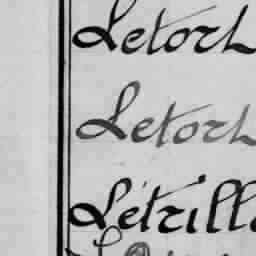 Letort
Letort
Létrill